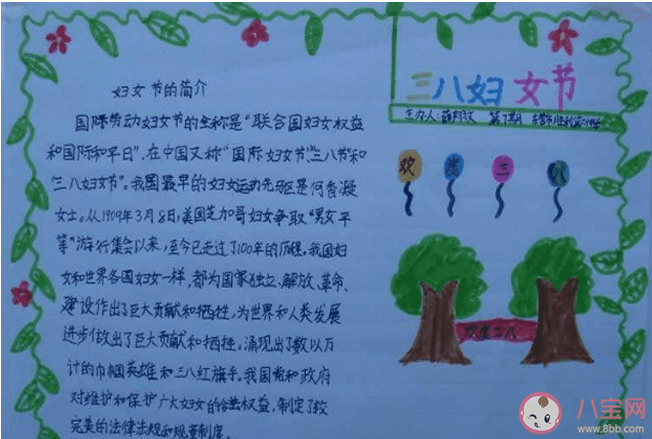 妇女节的简介
国际劳动妇女节的全称是"联合国妇女权益
和国际和平日"，在中国又称"国际妇女节""三八节"和
"三八妇女节"。我国最早的妇女运动先驱是何香凝
女士。从1909年3月8日，美国芝加哥妇女争取"男女平
等"游行集会以来，至今已走过了100年的历程，我国妇
女和世界各国妇女一样，都为国家独立、解放、革命、
建设作出了巨大贡献和牺牲，为世界和人类发展
进步做出了巨大贡献和牺牲，涌现出了数以万
计的巾帼英雄和三八红旗手。我国党和政府
对维护和保护广大妇女的合法权益，制定了较
完美的法律法规和规章制度。
三八妇女节
主办人：
欢度三八
欢度三八
八宝网
www.8bb.com